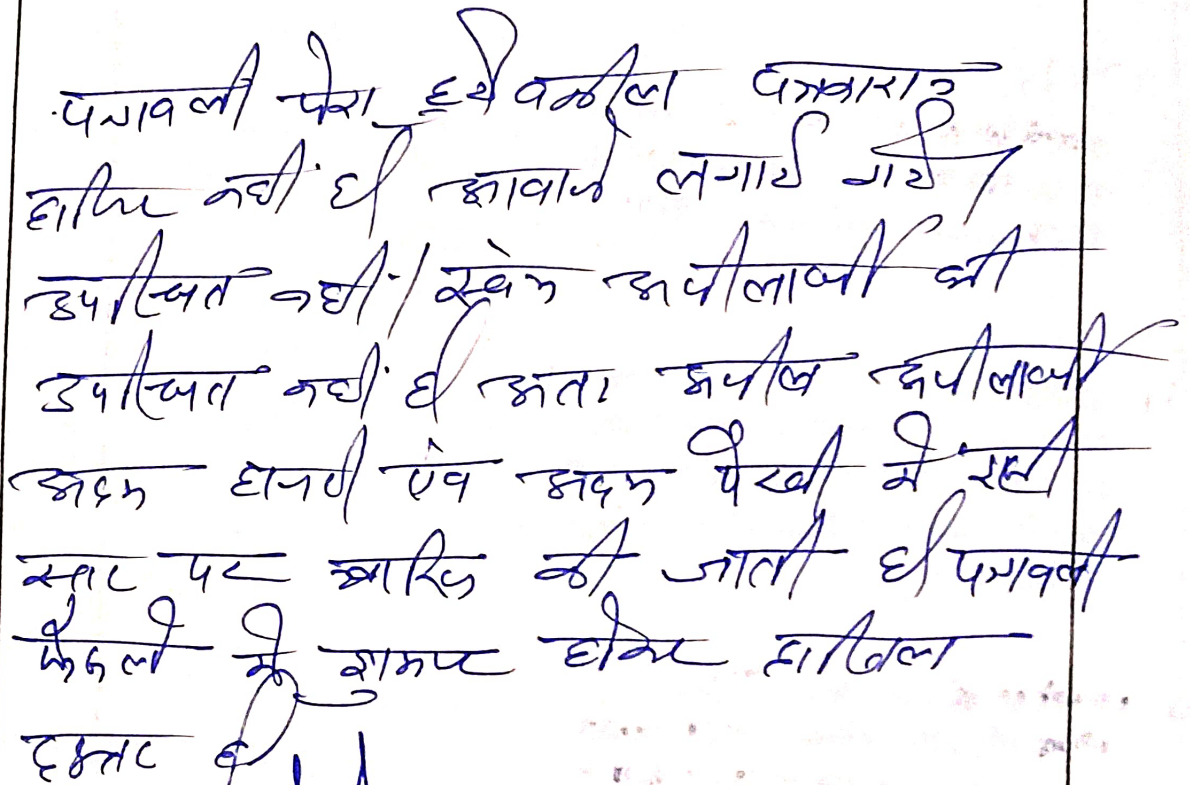 पत्रावली पेश हुये वकील पक्षकारान
हाजिर नहीं है आवाजे लगाई गई।
उपस्थित नहीं। स्वंय अपीलार्थी भी
उपस्थित नहीं है अतः अपील अपीलार्थी
अदम हाजरी एंव अदम पैरवी मे इसी
स्तर पर खारिज की जाती है पत्रावली
फैसले मे शुमार होकर दाखिल
दफ्तर हो